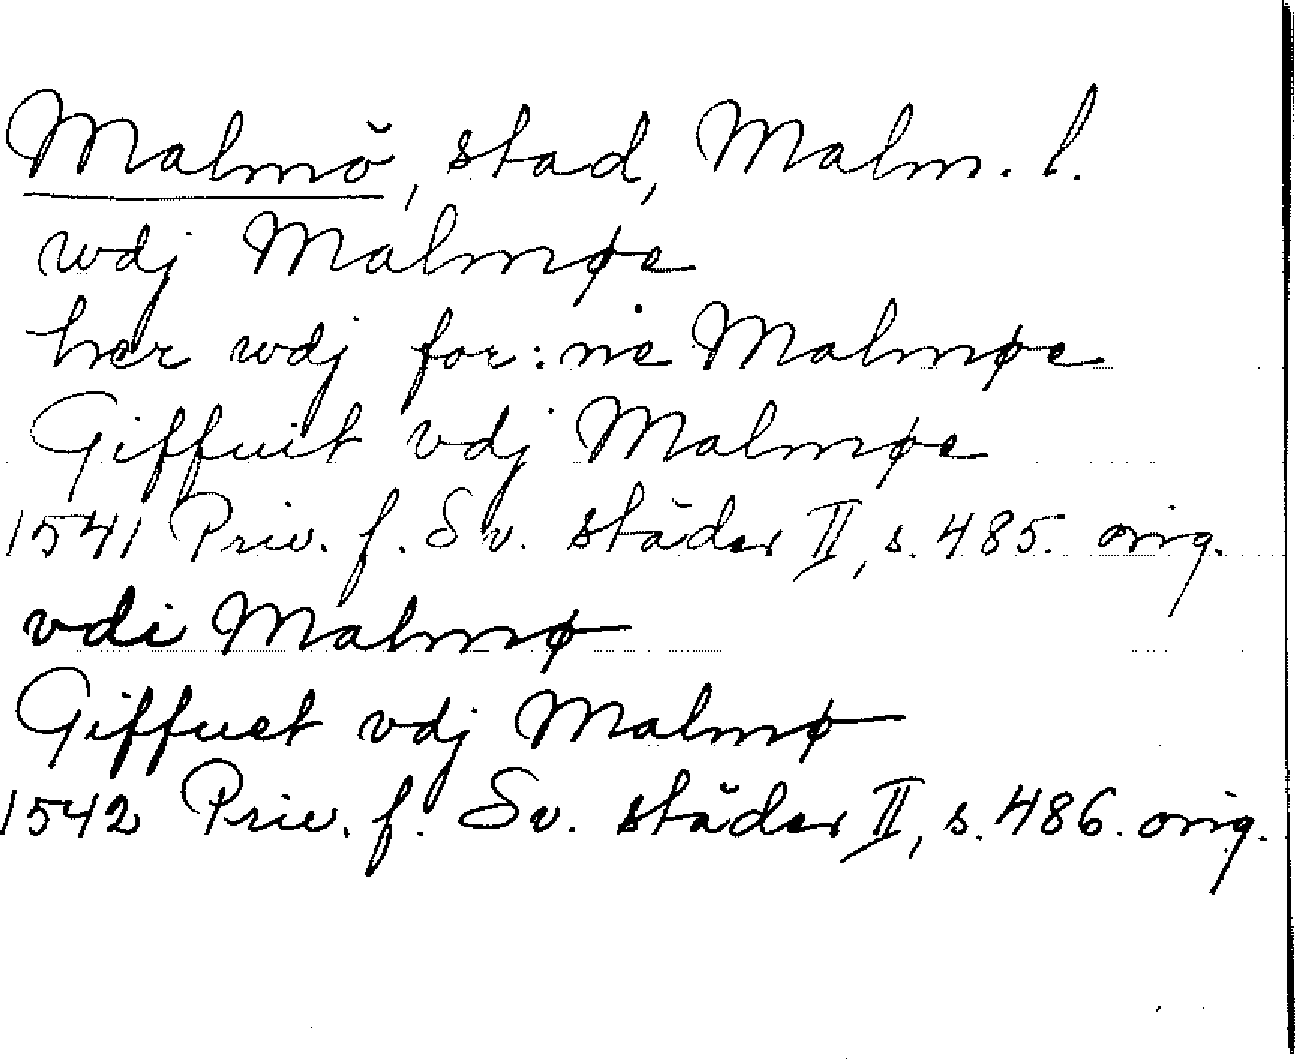 Malmö, stad, Malm. l.
wdj Malmøe
her wdj for:ne Malmøe
Giffuit vdj Malmøe
1541 Priv. f. Sv. städer II, s. 485. orig.
vdi Malmø
Giffuet vdj Malmø
1542 Priv. f. Sv. städer II, s. 486. orig.